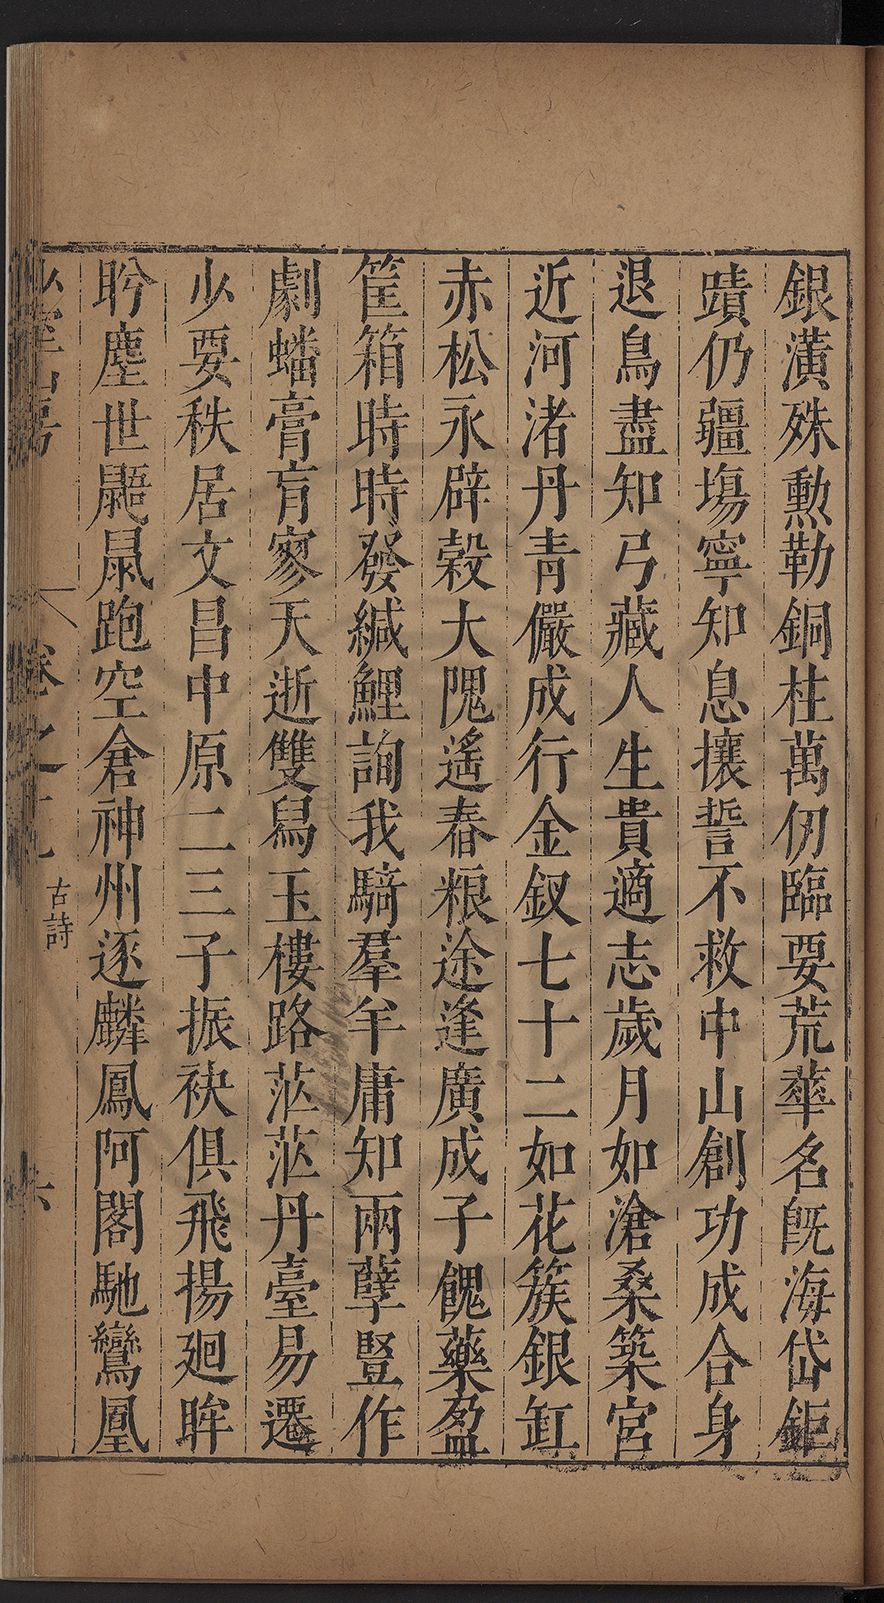 銀潢殊勳勒銅柱萬仞臨要荒華名既海岱鉅
蹟仍疆場寧知息攘誓不救中山創功成合身
退鳥盡知弓藏人生貴適志歲月如滄桑築宮
近河渚丹青儼成行金釵七十二如花簇銀缸
赤松永辟穀大隗遙舂粮途逢廣成子餽藥盈
筐箱時時發緘鯉詢我騎羣羊庸知兩孽豎作
劇蟠膏肓寥天逝雙舄玉樓路茫茫丹臺易遷
少要秩居文昌中原二三子振袂俱飛揚廻眸
盻塵世鼯鼠跑空倉神州逐麟鳳阿閣馳鸞凰
卷之
古詩
六